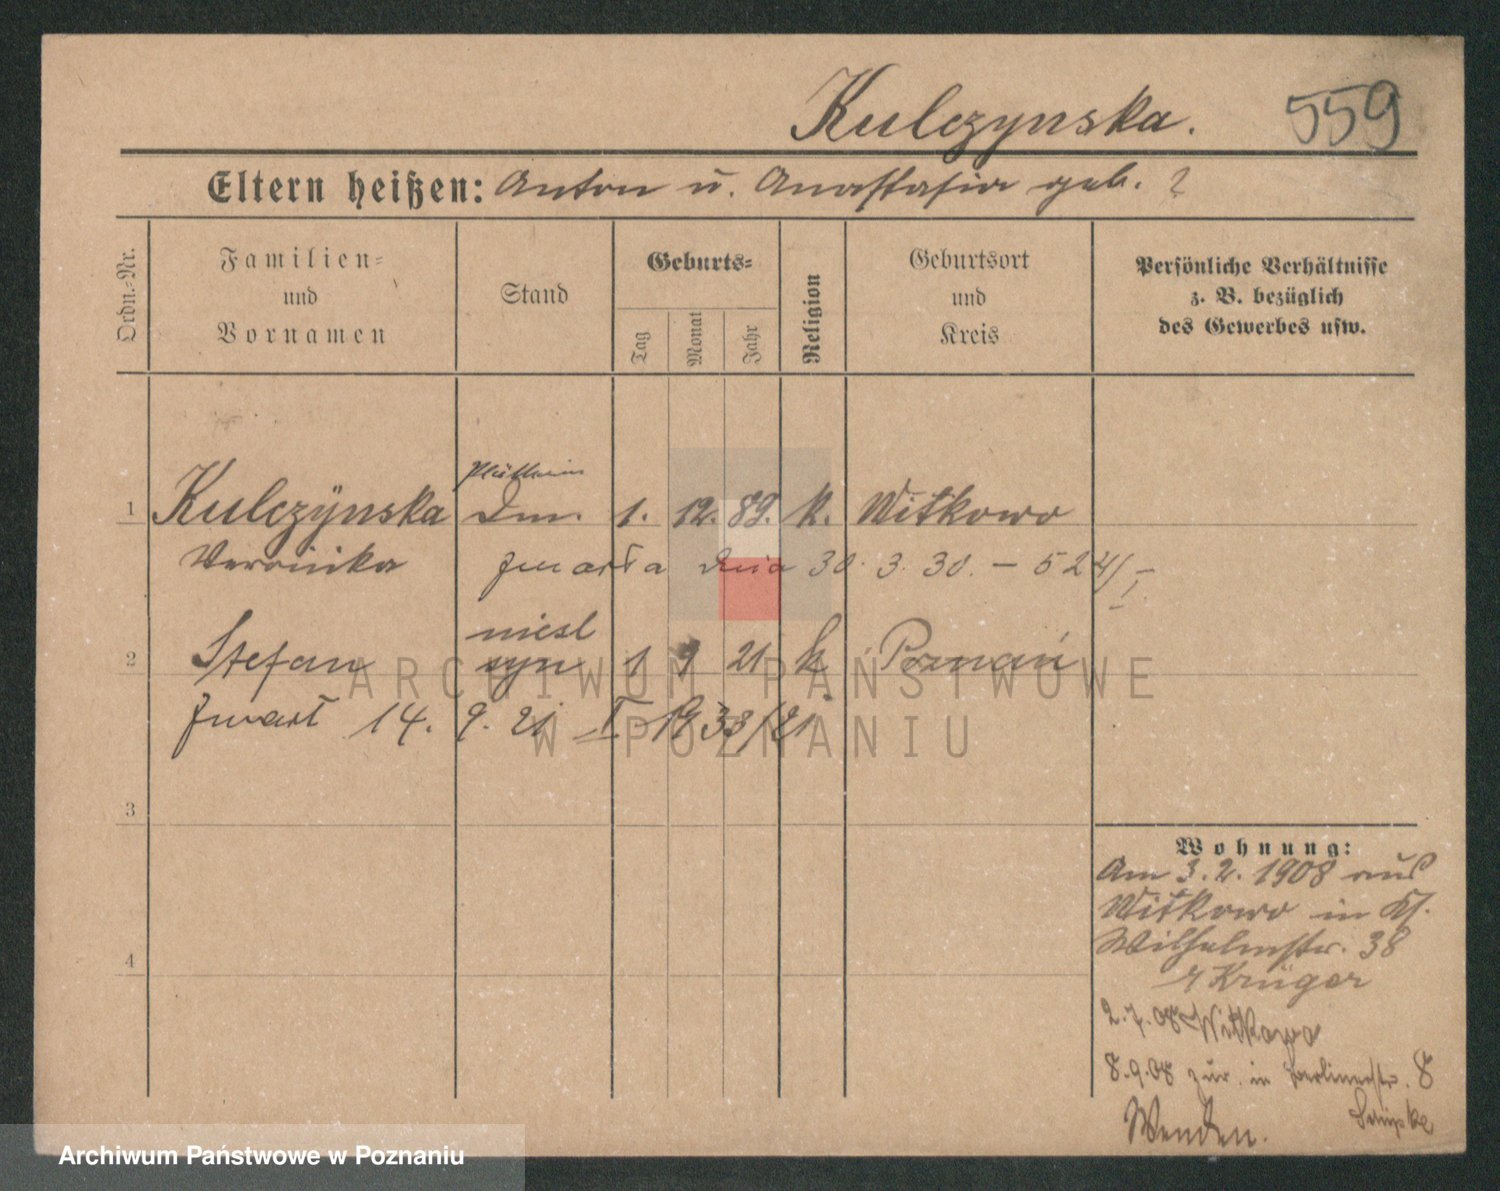 Kulczynska. 559
Eltern heißen: Anton u. Anastasia geb. ?
Ordn.=Nr.
Familien=
und
Vornamen
Stand
Geburts=
Tag
Monat
Jahr
Religion
Geburtsort
und
Kreis
Persönliche Verhältnisse
z. B. bezüglich
des Gewerbes usw.
1 Kulczÿnska 1. 12. 89. k. Witkowo
Veronika zmarła dnia 30. 3. 30. – 524/I.
nieśl
2 Stefan syn 1 9 21 k Poznań
zmarł 14. 9. 21 I 1938/21
3
4
Wohnung:
Am 3.2.1908 aus
Witkowo in Kl.
Wilhelmstr. 38
Krüger
2.7.08 Witkowo
8.9.08 zur. in Berlinerstr. 8
Wenden.
ARCHIWUM PAŃSTWOWE
W POZNANIU
Archiwum Państwowe w Poznaniu